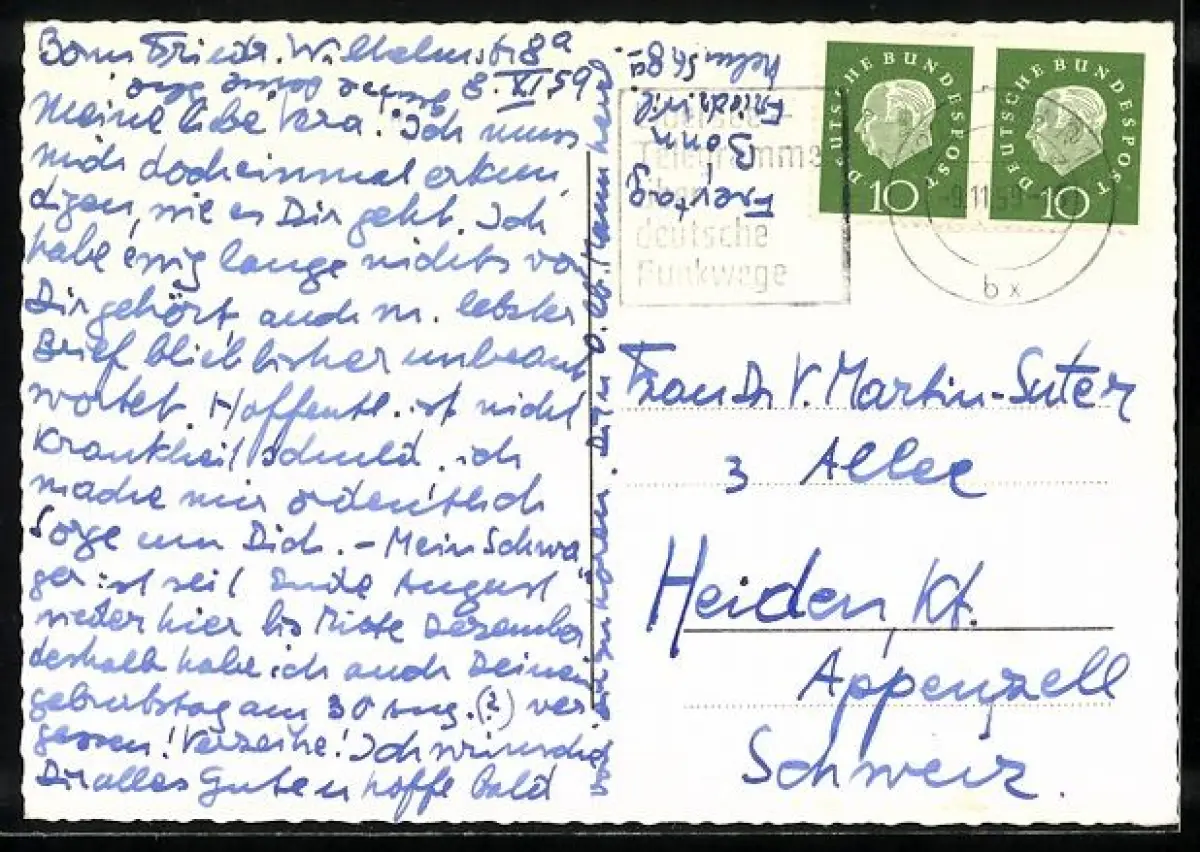 Bonn Friedr. Wilhelmstr 8a
8. XI. 59
Meine liebe Vera! Ich muss
mich doch einmal erkun
digen, wie es Dir geht. Ich
habe ewig lange nichts von
Dir gehört, auch m. letzter
Brief blieb bisher unbeant
wortet. Hoffentl. ist nicht
Krankheit schuld. ich
mache mir ordentlich
Sorge um Dich. – Mein Schwa
ger ist seit Ende August
wieder hier bis Mitte Dezember
deshalb habe ich auch Deinen
geburtstag am 30 Aug. (?) ver
gessen! Verzeihe! Ich wünsche
Dir alles Guten hoffe bald
zu hören.
Freytag
Bonn
Friedr. Wil
helmstr 8a
Übersee-
Telegramme
über
deutsche
Funkwege
DEUTSCHE BUNDESPOST
10
DEUTSCHE BUNDESPOST
10
-9.11.59
bx
Frau Dr V. Martin-Suter
3 Allee
Heiden, Kt.
Appenzell
Schweiz.